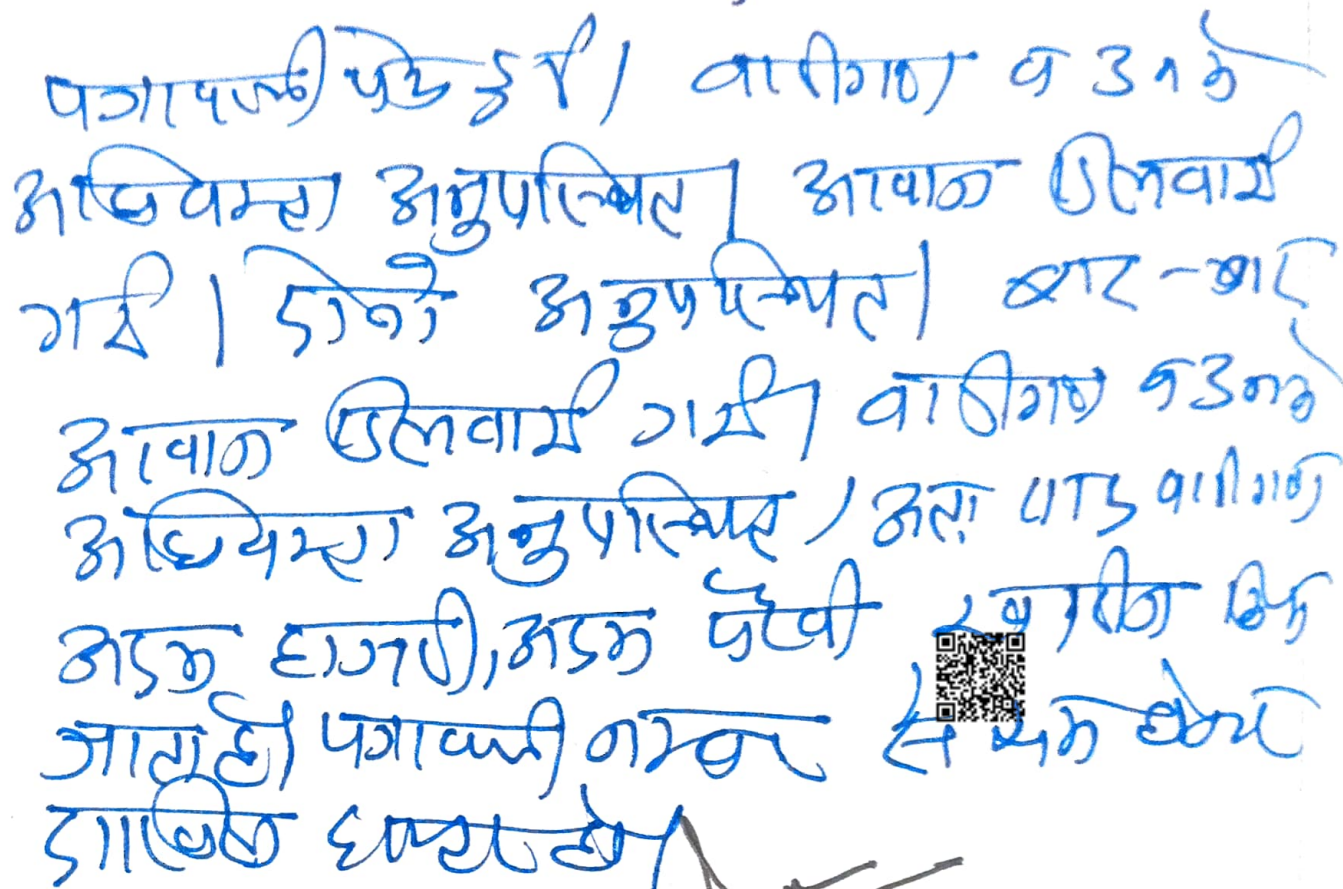 पत्रावली पेश हुई। वादीगण व उनके
अधिवक्ता अनुपस्थित। आवाज दिलवाई
गई। दोनो अनुपस्थित। बार-बार
आवाज दिलवाई गई। वादीगण व उनके
अधिवक्ता अनुपस्थित। अतः वाद वादीगण
अदम हाजरी, अदम पैरवी में खारीज किया
जाता है। पत्रावली नम्बर से कम होकर
दाखिल दफ्तर हो।